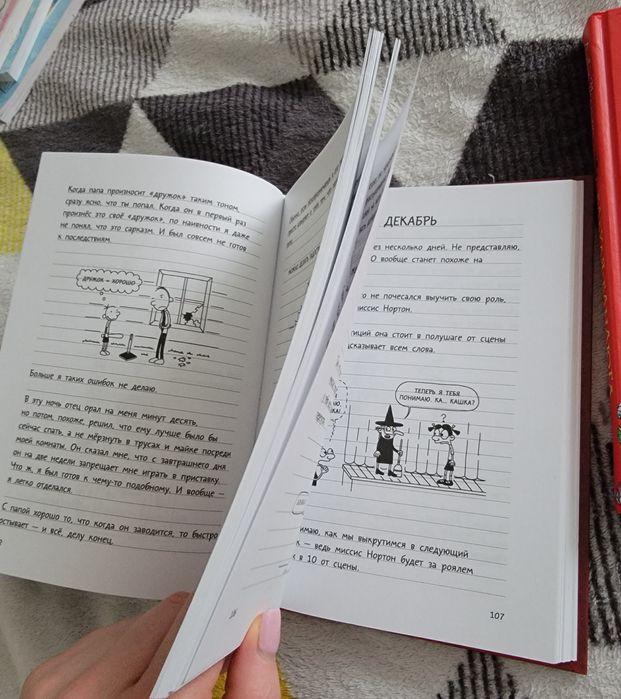 Когда папа произносит «дружок» таким тоном,
сразу ясно, что ты попал. Когда он в первый раз
произнёс это своё «дружок», по наивности я даже
не понял, что это сарказм. И был совсем не готов
к последствиям.
ДРУЖОК — ХОРОШО
Больше я таких ошибок не делаю.
В эту ночь отец орал на меня минут десять,
но потом, похоже, решил, что ему лучше было бы
сейчас спать, а не мёрзнуть в трусах и майке посреди
моей комнаты. Он сказал мне, что с завтрашнего дня
он на две недели запрещает мне играть в приставку.
Что ж, я был готов к чему-то подобному. И вообще —
я легко отделался.
С папой хорошо то, что когда он заводится, то быстро
остывает — и всё, делу конец.
106
ДЕКАБРЬ
ез несколько дней. Не представляю,
О вообще станет похоже на
о не почесался выучить свою роль,
миссис Нортон.
тиций она стоит в полушаге от сцены
дсказывает всем слова.
ТЕПЕРЬ Я ТЕБЯ
ПОНИМАЮ, КА... КАШКА?
?
нимаю, как мы выкрутимся в следующий
к — ведь миссис Нортон будет за роялем
х в 10 от сцены.
107